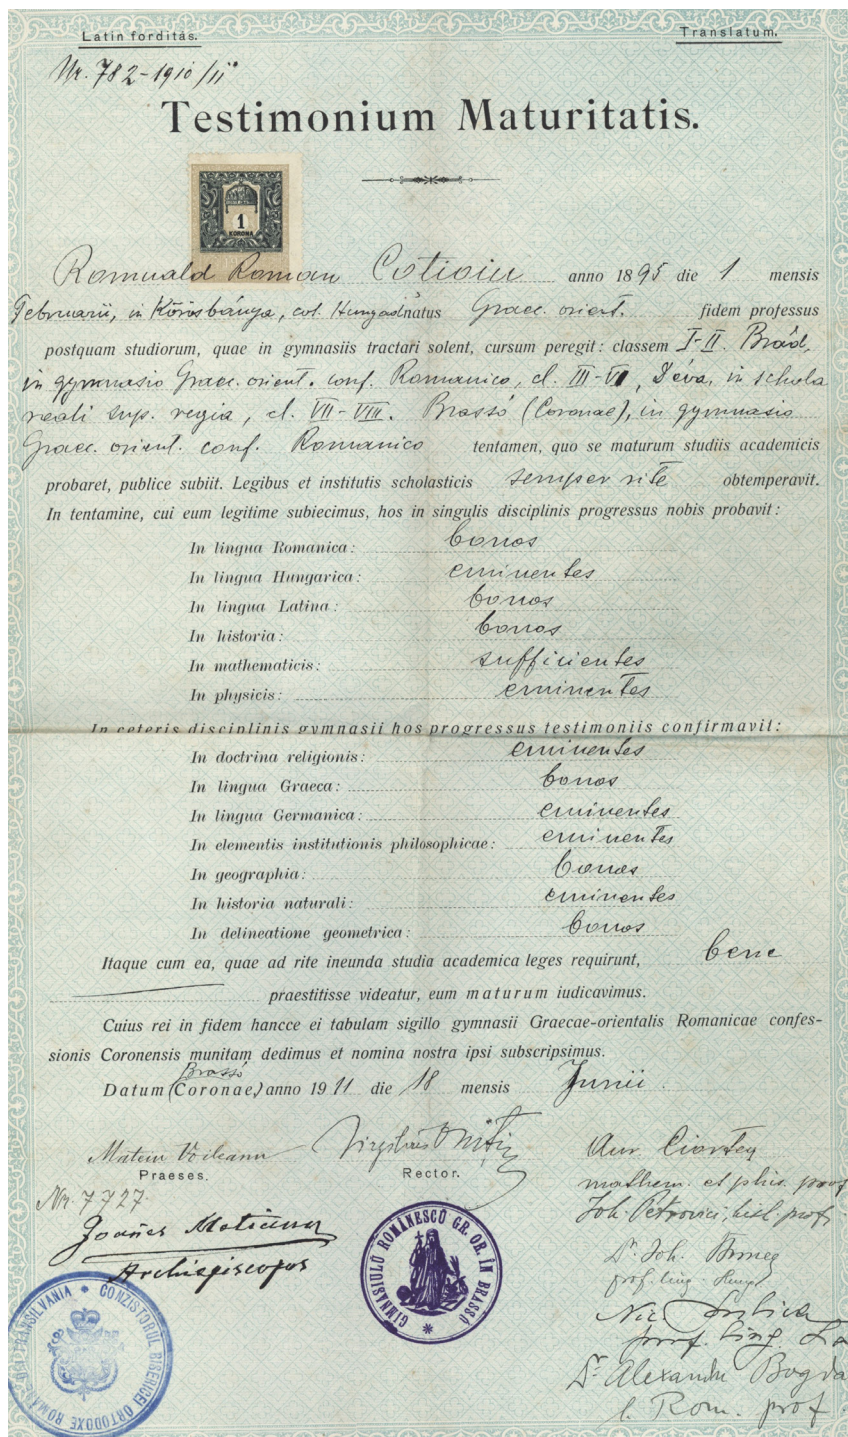 Latin fordítás. Translatum.
Nr. 782-1910/11
Testimonium Maturitatis.
1
KORONA
Romuald Roman Cotioiu anno 1895 die 1 mensis
Februarii, in Kőrösbánya, cot. Hunyad natus Graec. orient. fidem professus
postquam studiorum, quae in gymnasiis tractari solent, cursum peregit: classem I-II. Brád,
in gymnasio Graec. orient. conf. Romanico, cl. III-VI, Déva, in schola
reali sup. regia, cl. VII-VIII. Brassó (Coronae), in gymnasio
Graec. orient. conf. Romanico tentamen, quo se maturum studiis academicis
probaret, publice subiit. Legibus et institutis scholasticis semper rite obtemperavit.
In tentamine, cui eum legitime subiecimus, hos in singulis disciplinis progressus nobis probavit:
In lingua Romanica: bonos
In lingua Hungarica: eminentes
In lingua Latina: bonos
In historia: bonos
In mathematicis: sufficientes
In physicis: eminentes
In ceteris disciplinis gymnasii hos progressus testimoniis confirmavit:
In doctrina religionis: eminentes
In lingua Graeca: bonos
In lingua Germanica: eminentes
In elementis institutionis philosophicae: eminentes
In geographia: bonos
In historia naturali: eminentes
In delineatione geometrica: bonos
Itaque cum ea, quae ad rite ineunda studia academica leges requirunt, bene
praestitisse videatur, eum maturum iudicavimus.
Cuius rei in fidem hancce ei tabulam sigillo gymnasii Graecae-orientalis Romanicae confes-
sionis Coronensis munitam dedimus et nomina nostra ipsi subscripsimus.
Brassó
Datum (Coronae,) anno 1911 die 18 mensis Junii.
Mateiu Voileanu Virgilius Oniţiu Aur. Ciortea
Praeses. Rector. mathem. et phis. prof
Nr. 7727. Joh. Petrovici, hist. prof
Joañes Metianu Dr. Joh.
Archiepiscopus prof. ling. Hung.
GIMNASIULŬ ROMÂNESCŬ GR. OR. ÎN BRASSÓ
Nic
prof. ling. La
CONZISTORUL BISERICEI ORTODOXE ROMÂNE DIN TRANSILVANIA
Dr Alexandru Bogda
l. Rom. prof.